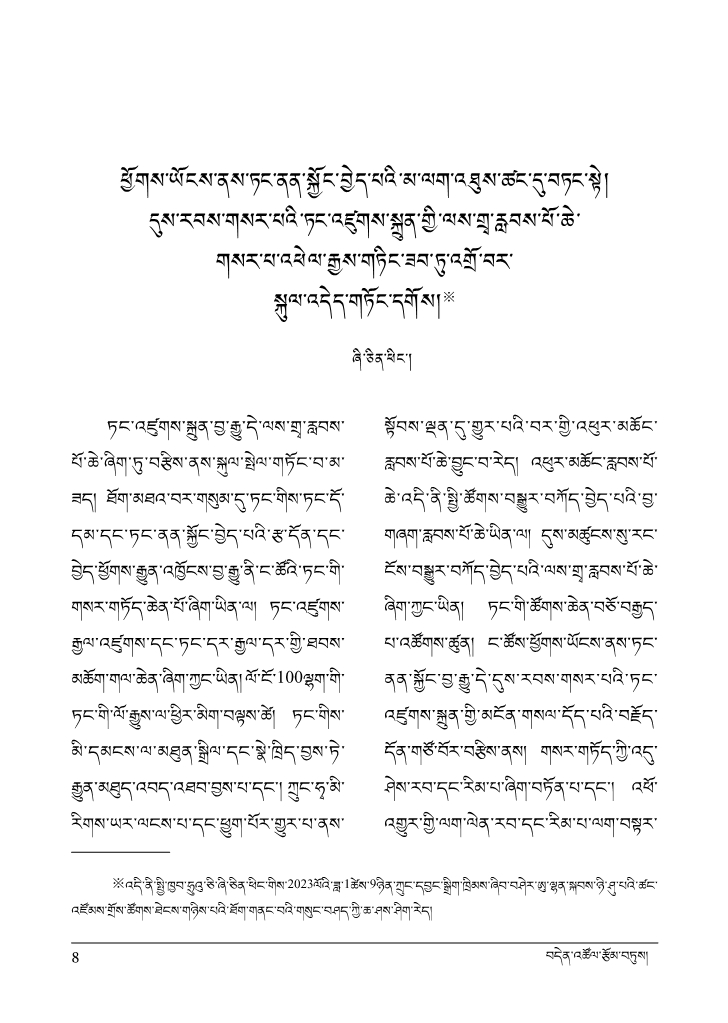 ཕྱོགས་ཡོངས་ནས་ཏང་ནན་སྐྱོང་བྱེད་པའི་མ་ལག་འཐུས་ཚང་དུ་བཏང་སྟེ།
དུས་རབས་གསར་པའི་ཏང་འཛུགས་སྐྲུན་གྱི་ལས་གྲྭ་རླབས་པོ་ཆེ་
གསར་པ་འཕེལ་རྒྱས་གཏིང་ཟབ་ཏུ་འགྲོ་བར་
སྐུལ་འདེད་གཏོང་དགོས།※
ཞི་ཅིན་ཕིང་།
ཏང་འཛུགས་སྐྲུན་བྱ་རྒྱུ་དེ་ལས་གྲྭ་རླབས་
པོ་ཆེ་ཞིག་ཏུ་བརྩིས་ནས་སྐུལ་སྤེལ་གཏོང་བ་མ་
ཟད། ཐོག་མཐའ་བར་གསུམ་དུ་ཏང་གིས་ཏང་དོ་
དམ་དང་ཏང་ནན་སྐྱོང་བྱེད་པའི་རྩ་དོན་དང་
བྱེད་ཕྱོགས་རྒྱུན་འཁྱོངས་བྱ་རྒྱུ་ནི་ང་ཚོའི་ཏང་གི་
གསར་གཏོད་ཆེན་པོ་ཞིག་ཡིན་ལ། ཏང་འཛུགས་
རྒྱལ་འཛུགས་དང་ཏང་དར་རྒྱལ་དར་གྱི་ཐབས་
མཆོག་གལ་ཆེན་ཞིག་ཀྱང་ཡིན། ལོ་ངོ་100ལྷག་གི་
ཏང་གི་ལོ་རྒྱུས་ལ་ཕྱིར་མིག་བལྟས་ཚེ། ཏང་གིས་
མི་དམངས་ལ་མཐུན་སྒྲིལ་དང་སྣེ་ཁྲིད་བྱས་ཏེ་
རྒྱུན་མཐུད་འབད་འཐབ་བྱས་པ་དང་། ཀྲུང་ཧྭ་མི་
རིགས་ཡར་ལངས་པ་དང་ཕྱུག་པོར་གྱུར་པ་ནས་
སྟོབས་ལྡན་དུ་གྱུར་པའི་བར་གྱི་འཕུར་མཆོང་
རླབས་པོ་ཆེ་བྱུང་བ་རེད། འཕུར་མཆོང་རླབས་པོ་
ཆེ་འདི་ནི་སྤྱི་ཚོགས་བསྒྱུར་བཀོད་བྱེད་པའི་བྱ་
གཞག་རླབས་པོ་ཆེ་ཡིན་ལ། དུས་མཚུངས་སུ་རང་
ངོས་བསྒྱུར་བཀོད་བྱེད་པའི་ལས་གྲྭ་རླབས་པོ་ཆེ་
ཞིག་ཀྱང་ཡིན། ཏང་གི་ཚོགས་ཆེན་བཅོ་བརྒྱད་
པ་འཚོགས་ཚུན། ང་ཚོས་ཕྱོགས་ཡོངས་ནས་ཏང་
ནན་སྐྱོང་བྱ་རྒྱུ་དེ་དུས་རབས་གསར་པའི་ཏང་
འཛུགས་སྐྲུན་གྱི་མངོན་གསལ་དོད་པའི་བརྗོད་
དོན་གཙོ་བོར་བརྩིས་ནས། གསར་གཏོད་ཀྱི་འདུ་
ཤེས་རབ་དང་རིམ་པ་ཞིག་བཏོན་པ་དང་། འཕོ་
འགྱུར་གྱི་ལག་ལེན་རབ་དང་རིམ་པ་ལག་བསྟར་
※འདི་ནི་སྤྱི་ཁྱབ་ཧྲུའུ་ཅི་ཞི་ཅིན་ཕིང་གིས་2023ལོའི་ཟླ་1ཚེས་9ཉིན་ཀྲུང་དབྱང་སྒྲིག་ཁྲིམས་ཞིབ་བཤེར་ཨུ་ལྷན་སྐབས་ཉི་ཤུ་པའི་ཚང་
འཛོམས་གྲོས་ཚོགས་ཐེངས་གཉིས་པའི་ཐོག་གནང་བའི་གསུང་བཤད་ཀྱི་ཆ་ཤས་ཤིག་རེད།
8
བདེན་འཚོལ་རྩོམ་བཏུས།